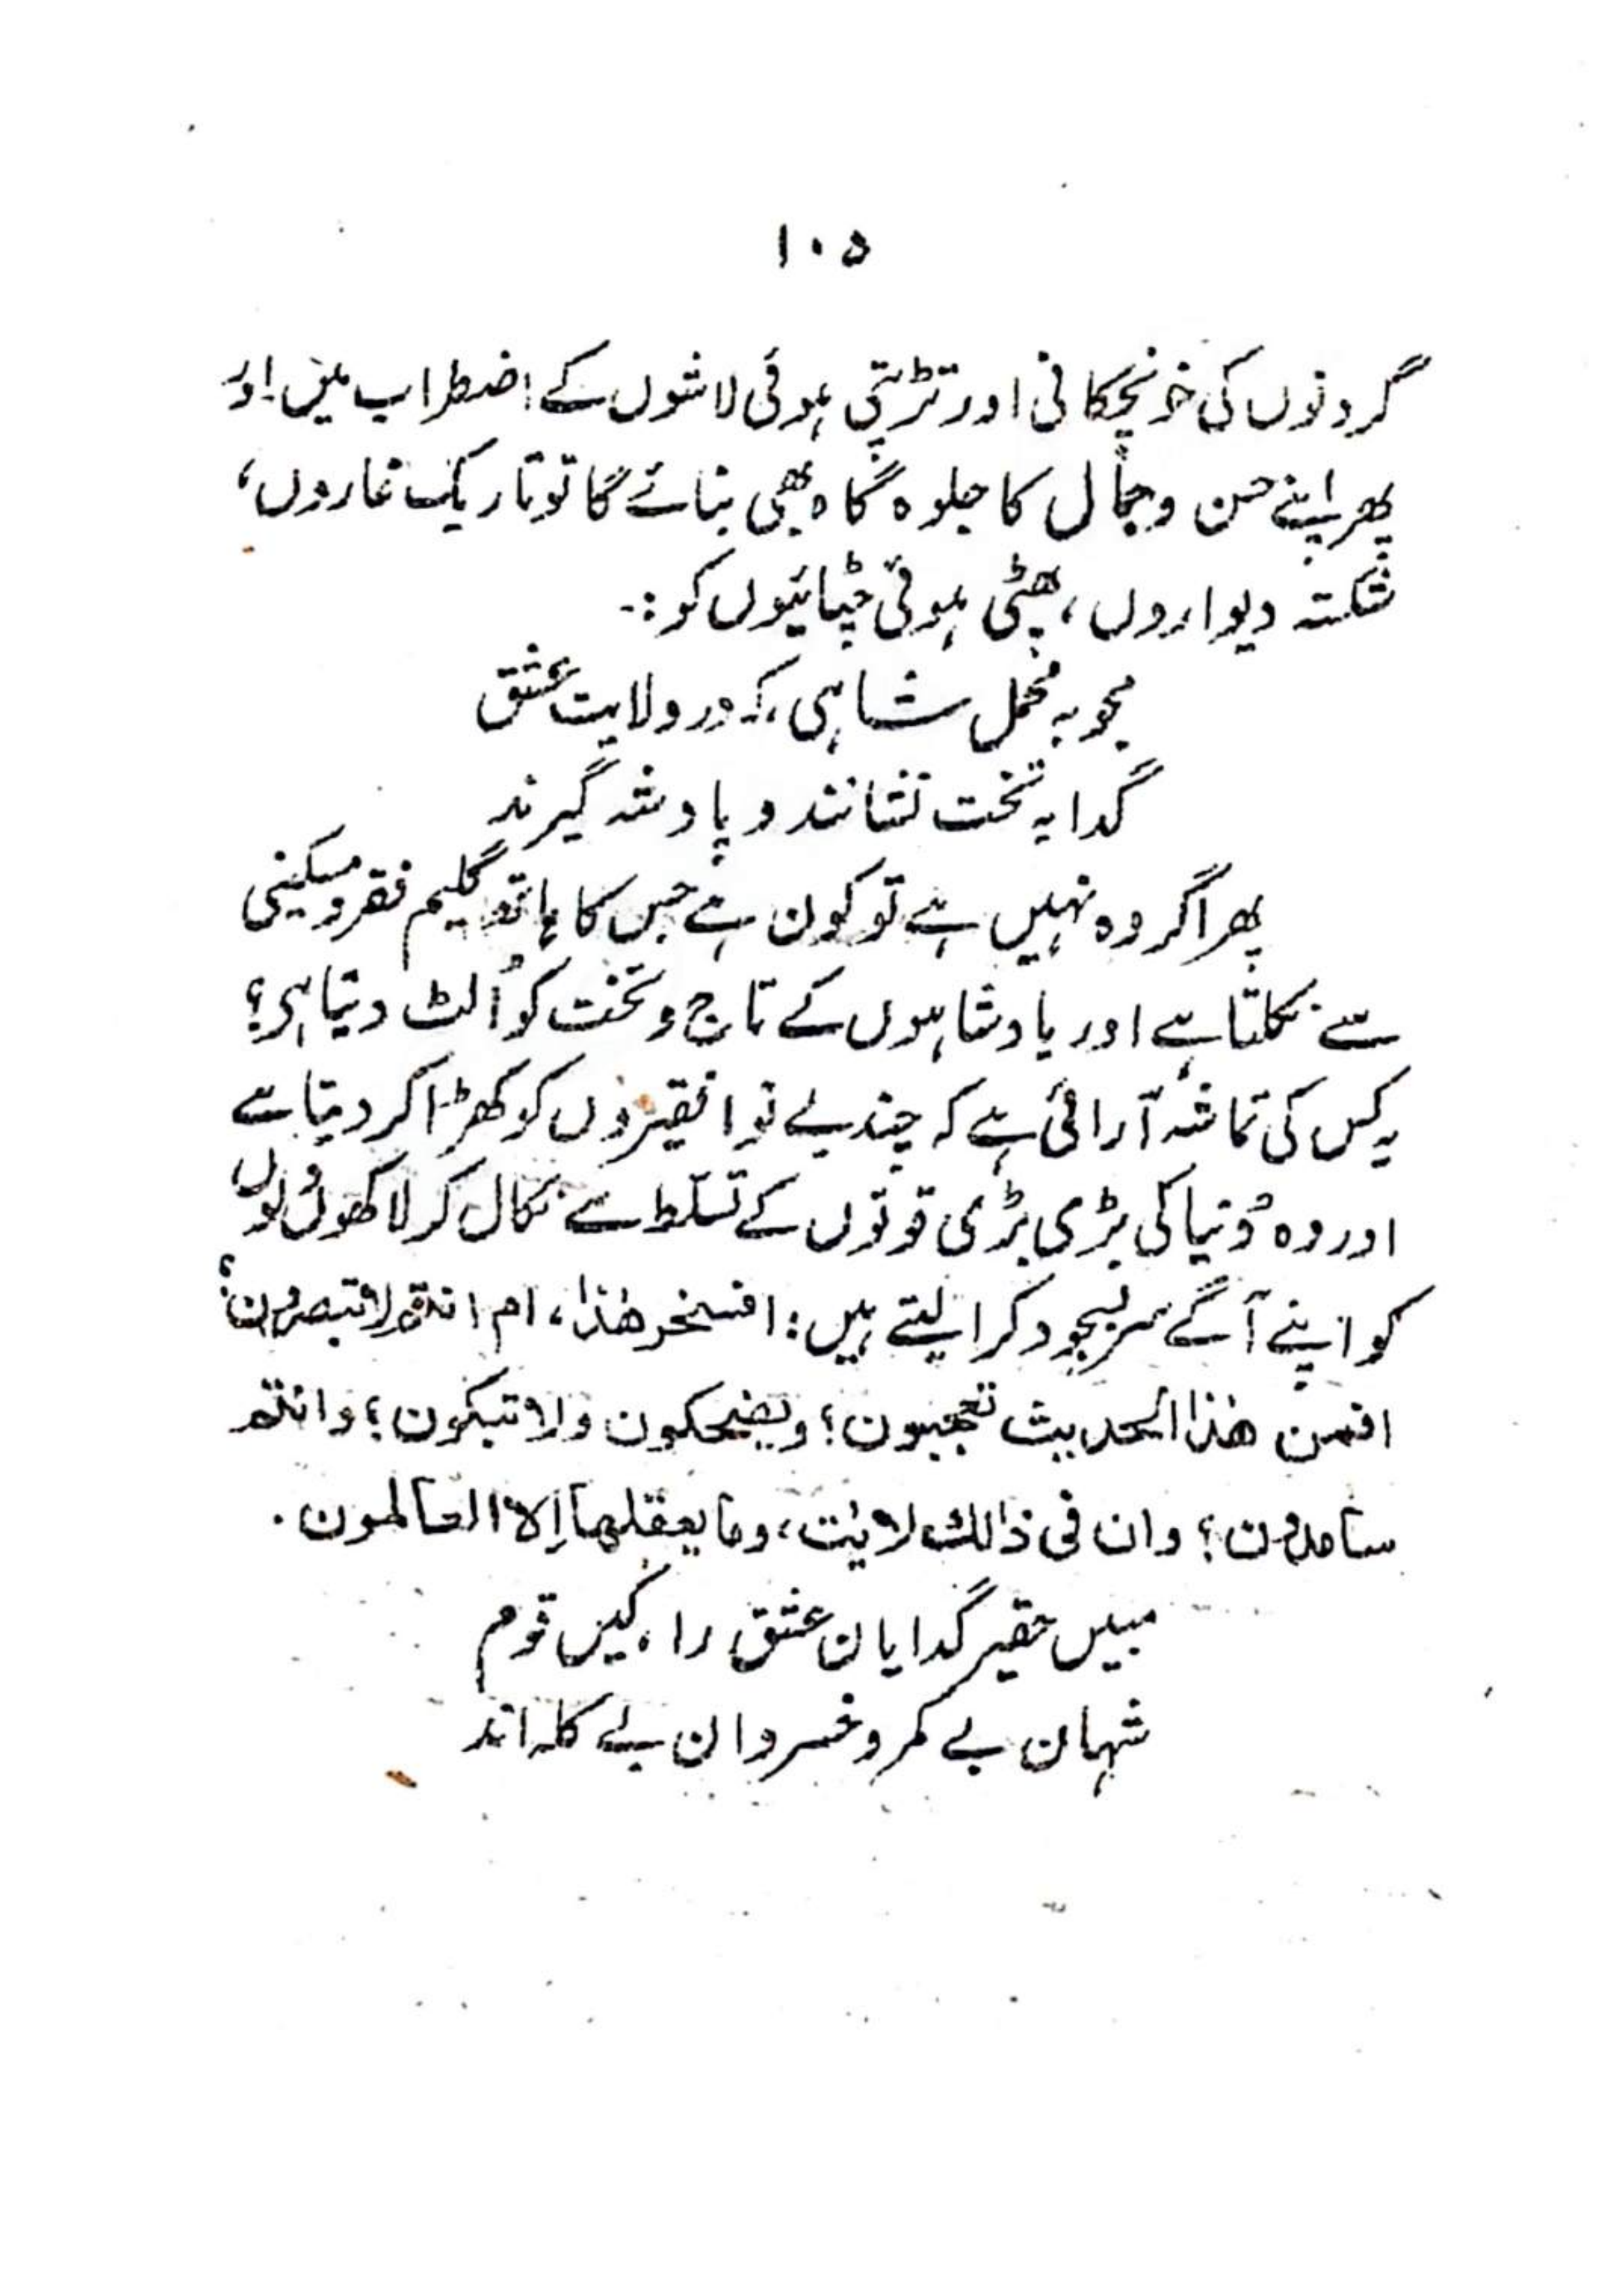 ۱۰۵
گردنوں کی خونچکانی اور تڑپتی ہوئی لاشوں کے اضطراب میں۔ اور
پھر اپنے حسن و جمال کا جلوہ گاہ بھی بنائے گا تو تاریک غاروں،
شکستہ دیواروں، پھٹی ہوئی چٹائیوں کو :۔
مجو بہ محمل شاہی، کہ در ولایت عشق
گدا بہ تخت نشانند و پادشہ گیرند
پھر اگر وہ نہیں ہے تو کون ہے جس کا ہاتھ گلیم فقر و مسکینی
سے نکلتا ہے اور پادشاہوں کے تاج و تخت کو اُلٹ دیتا ہی؟
یہ کس کی تماشہ آرائی ہے کہ چند بے نوا فقیروں کو کھڑا کر دیتا ہے
اور وہ دُنیا کی بڑی بڑی قوتوں کے تسلّط سے نکال کر لاکھوں دلوں
کو اپنے آگے سر بسجود کرا لیتے ہیں: افسخر ھٰذا، ام انتم لا تبصرون؟
افمن ھٰذا الحدیث تعجبون؟ ویضحکون ولا تبکون؟ وانتم
سامدون؟ وان فی ذالک لایٰت، وما یعقلھا اِلا العالمون۔
مبیں حقیر گدایان عشق را، کیں قوم
شہان بے کمر و خسروان بے کلہ اند